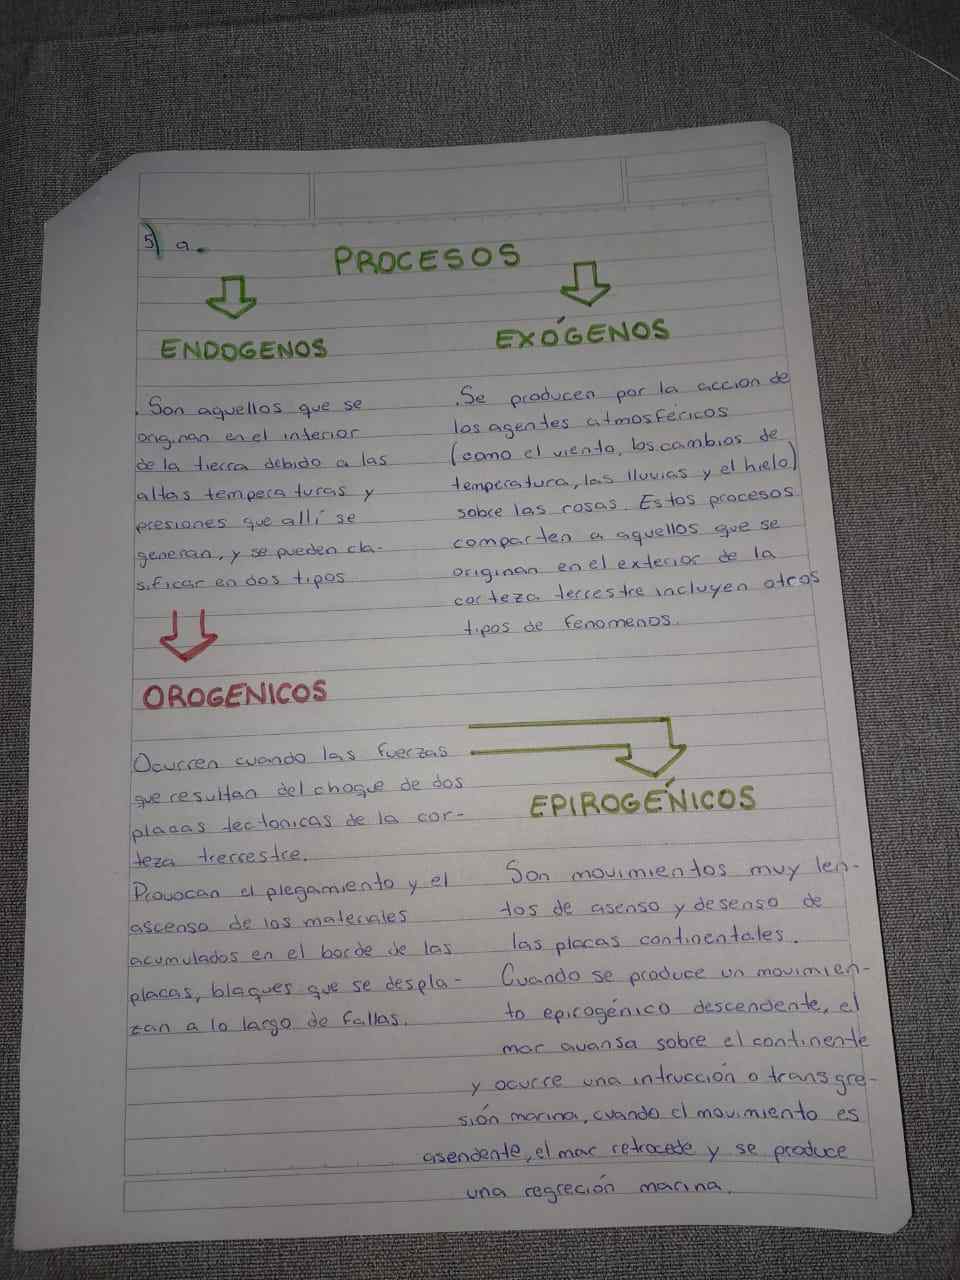 5) a.
PROCESOS
ENDOGENOS
EXÓGENOS
. Son aquellos que se
originan en el interior
de la tierra debido a las
altas temperaturas y
presiones que allí se
generan, y se pueden cla-
sificar en dos tipos
. Se producen por la accion de
los agentes atmosféricos
(como el viento, los cambios de
temperatura, las lluvias y el hielo)
sobre las rosas. Estos procesos
comparten a aquellos que se
originan en el exterior de la
corteza terrestre incluyen otros
tipos de fenomenos.
OROGENICOS
Ocurren cuando las fuerzas
que resultan del choque de dos
placas tectonicas de la cor-
teza trerrestre.
Provocan el plegamiento y el
ascenso de los materiales
acumulados en el borde de las
placas, bloques que se despla-
zan a lo largo de fallas.
EPIROGÉNICOS
Son movimientos muy len-
tos de asenso y desenso de
las placas continentales.
Cuando se produce un movimien-
to epirogénico descendente, el
mar avansa sobre el continente
y ocurre una intrucción o transgre-
sión marina, cuando el movimiento es
asendente, el mar retrocede y se produce
una regreción marina.